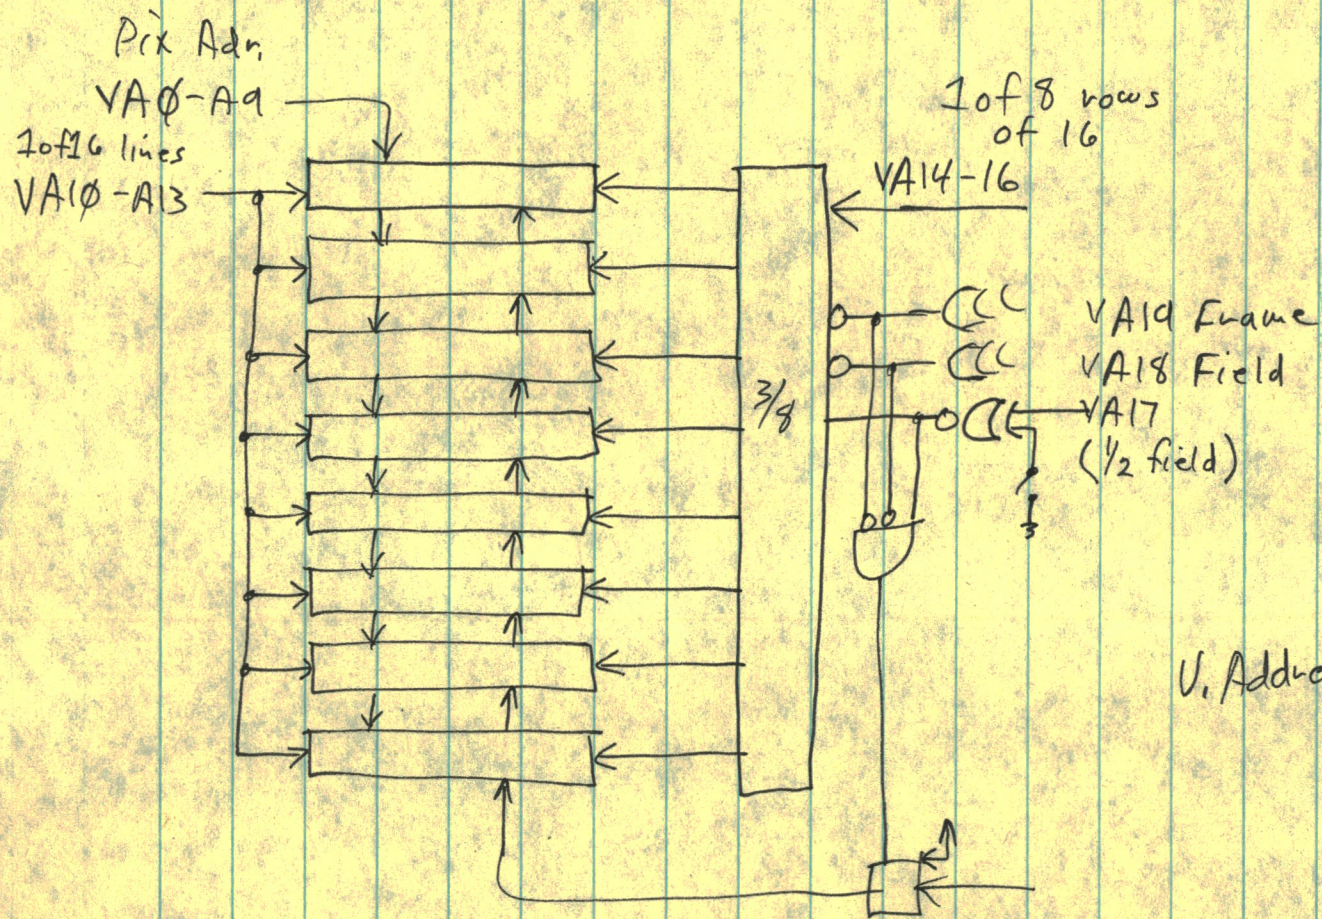 Pix Adr.
VAØ-A9
1of16 lines
VA1Ø-A13
1of 8 rows
of 16
VA14-16
VA19 Frame
VA18 Field
3/8
VA17
(1/2 field)
V. Addre